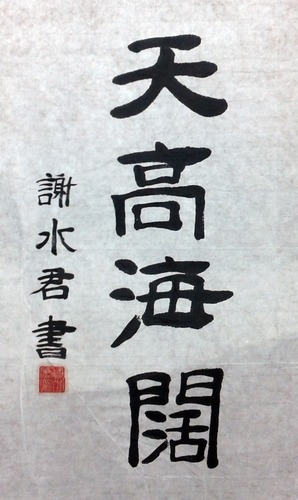 天高海闊
謝水君書